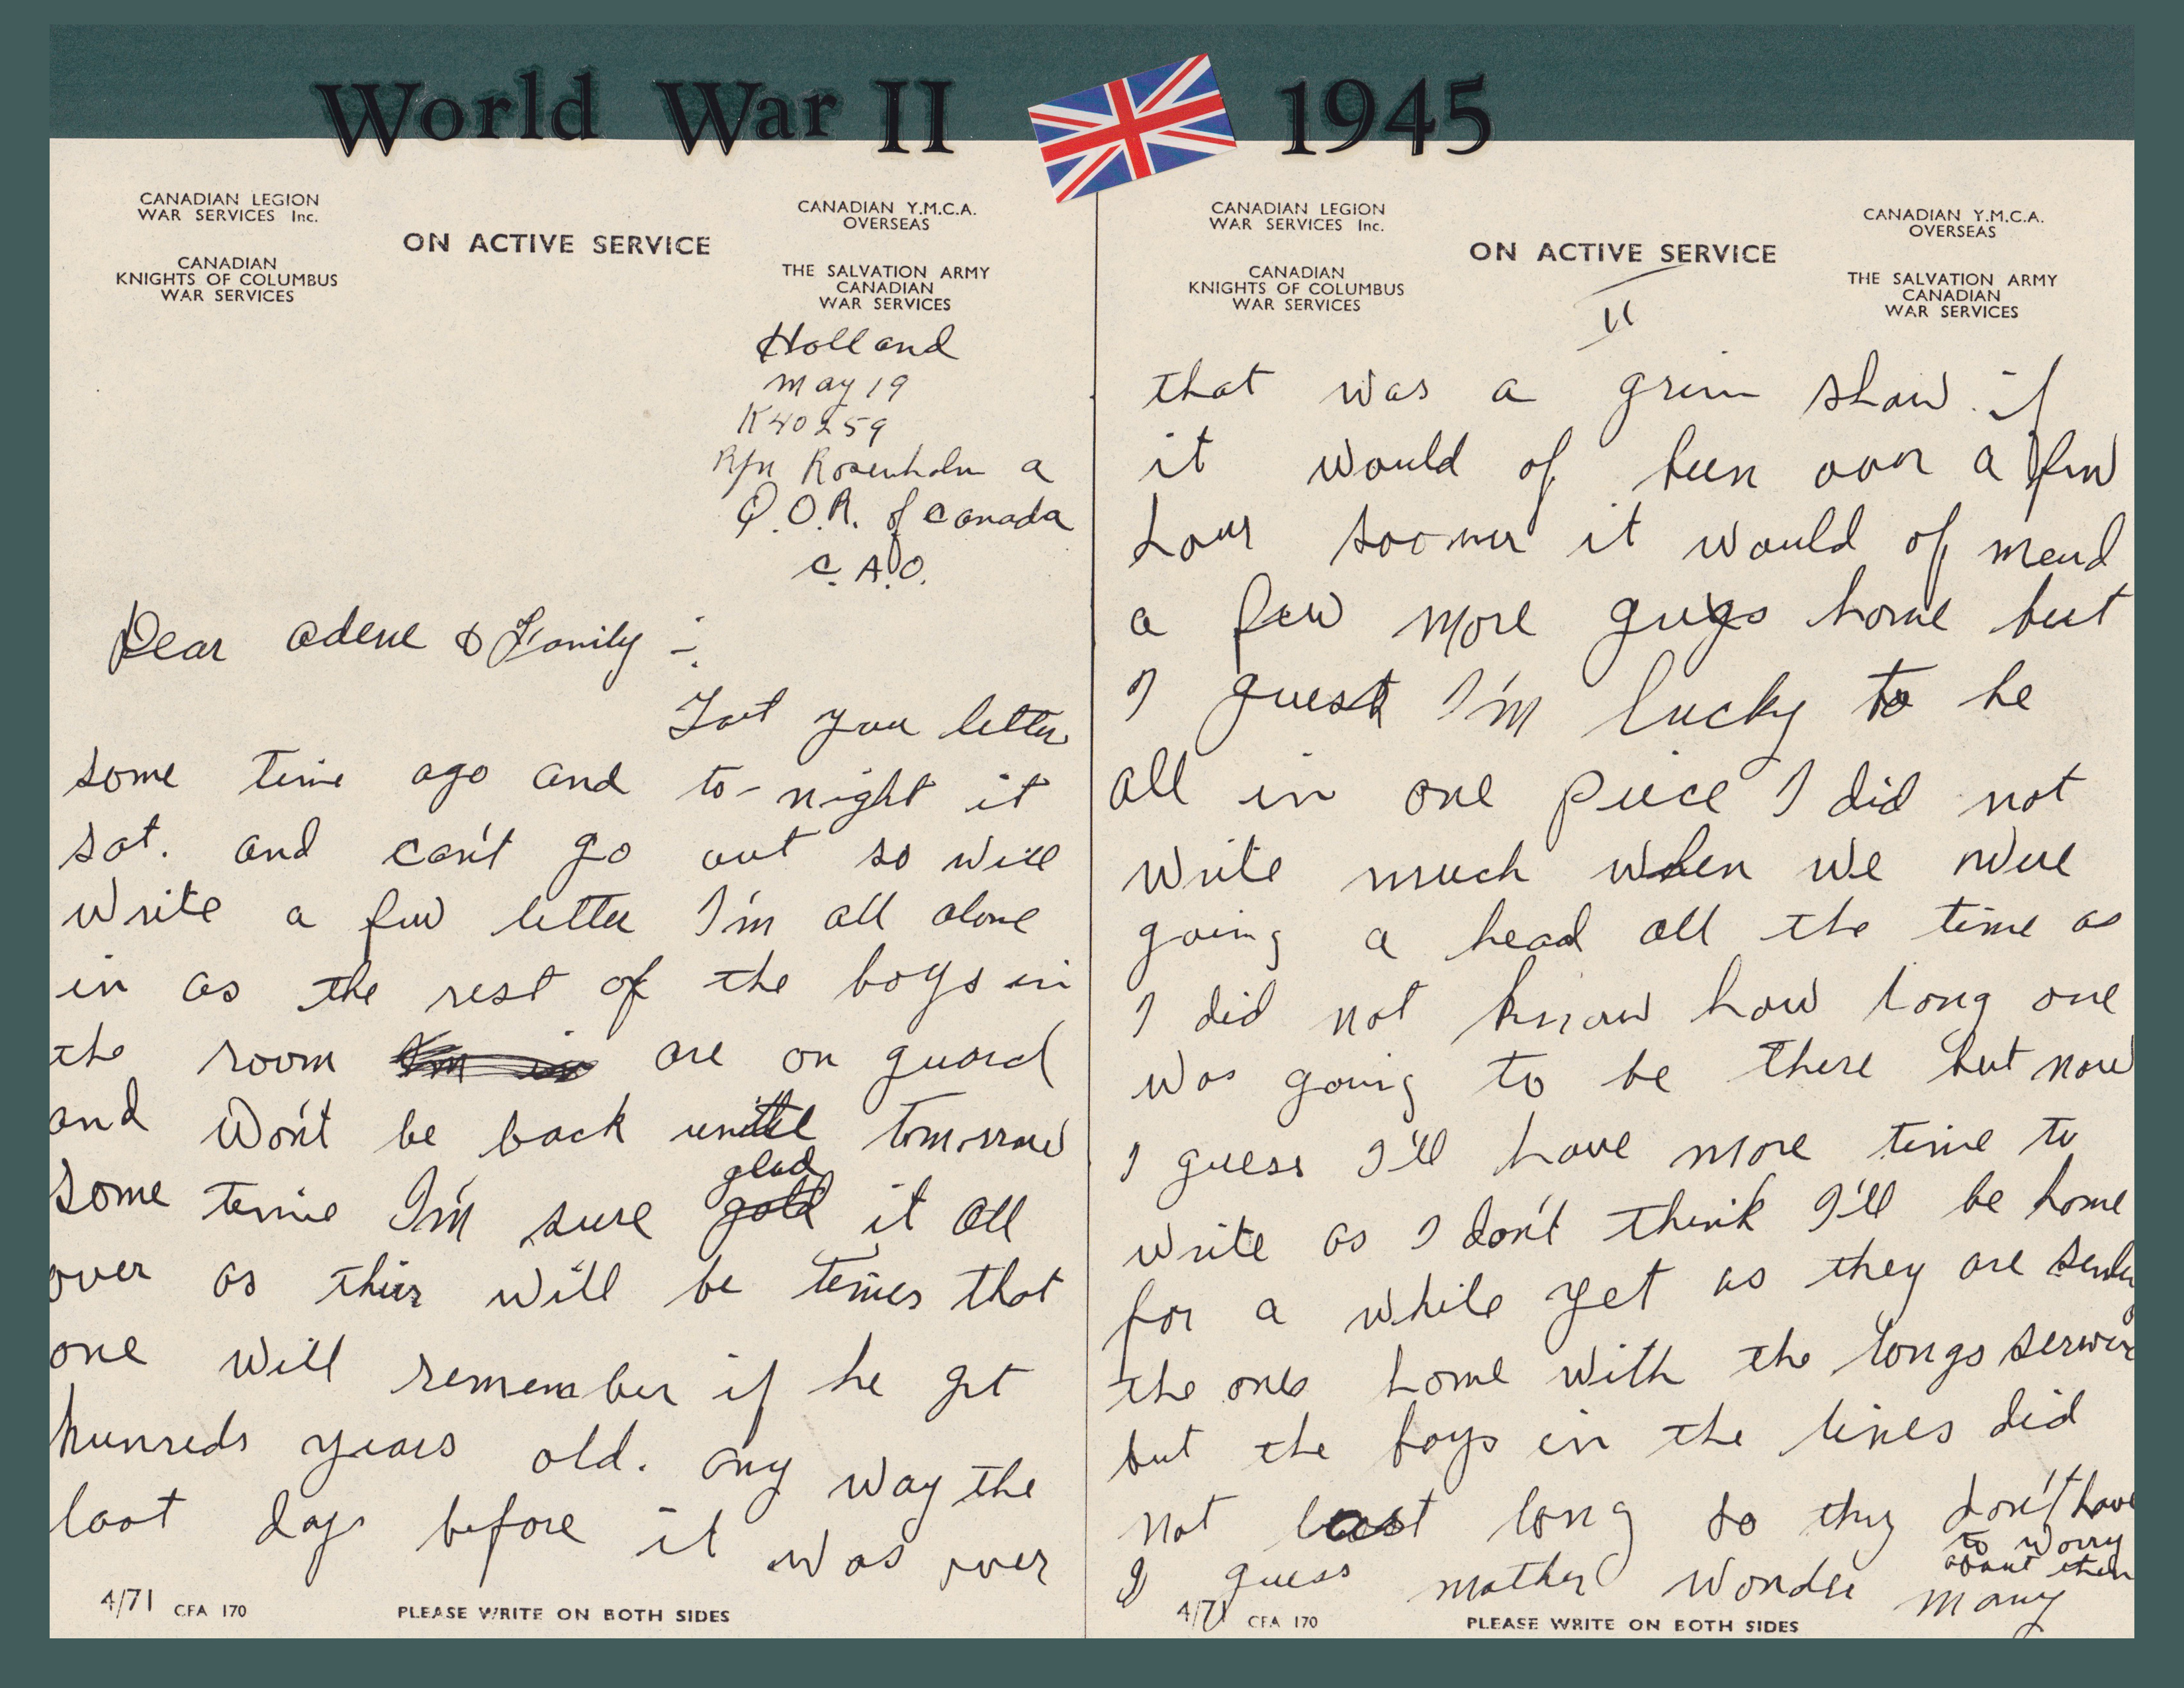 World War II 1945
CANADIAN LEGION
WAR SERVICES Inc.
CANADIAN
KNIGHTS OF COLUMBUS
WAR SERVICES
ON ACTIVE SERVICE
CANADIAN Y.M.C.A.
OVERSEAS
THE SALVATION ARMY
CANADIAN
WAR SERVICES
Holland
May 19
K40259
Rfn Rosenholm A
Q.O.R. of Canada
C.A.O.
Dear Adene & Family :-
Got you letter
some time ago and to-night it
sat. and can't go out so will
write a few letter I'm all alone
in as the rest of the boys in
the room are on guard
and Won't be back untill tomorrow
some time I'm sure glad it all
over as thier will be times that
one will remember if he get
hunreds years old. any way the
last days before it was over
4/71 CFA 170
PLEASE WRITE ON BOTH SIDES
CANADIAN LEGION
WAR SERVICES Inc.
CANADIAN
KNIGHTS OF COLUMBUS
WAR SERVICES
ON ACTIVE SERVICE
CANADIAN Y.M.C.A.
OVERSEAS
THE SALVATION ARMY
CANADIAN
WAR SERVICES
II
that was a grim show. if
it would of been over a few
hour soomer it would of mend
a few more guys home but
I guest I'm lucky to be
all in one piece I did not
write much when we were
going a head all the time as
I did not know how long one
was going to be there but now
I guess I'll have more time to
write as I don't think I'll be home
for a while yet as they are
the ones home with the longs
but the boys in the lines did
not last long so they don't have
to worry
about them
I guess mother wonder many
4/71 CFA 170
PLEASE WRITE ON BOTH SIDES